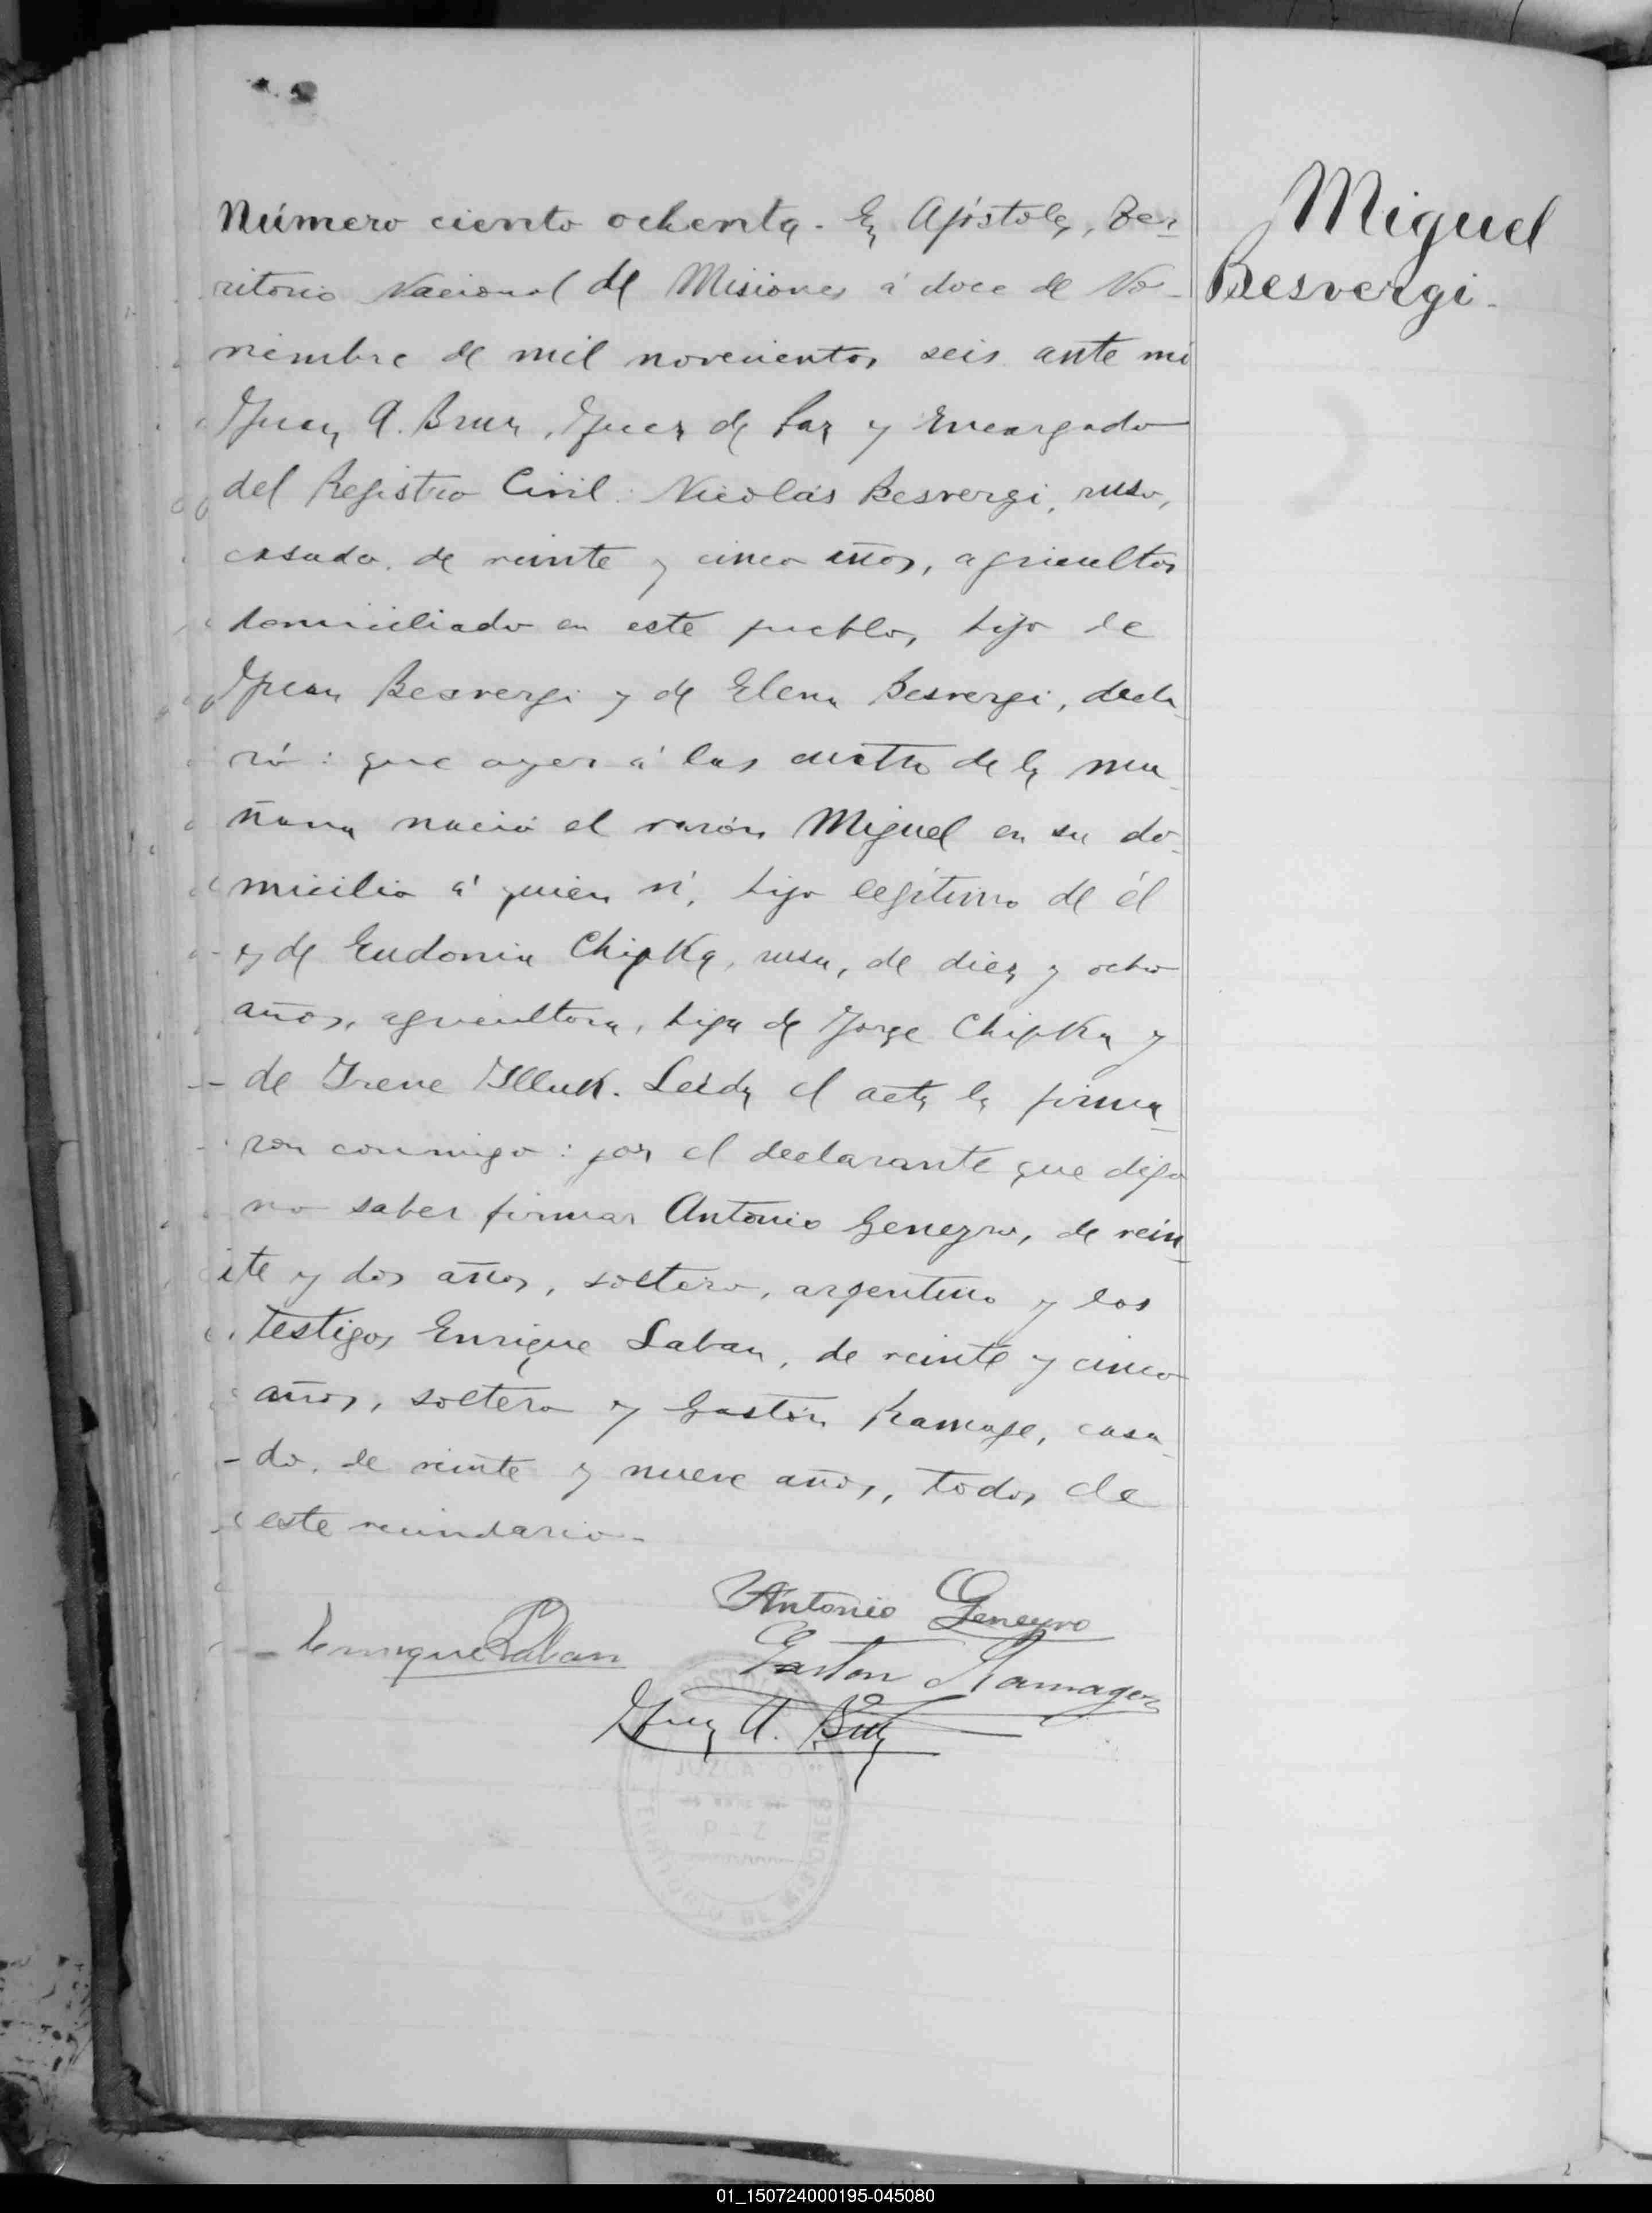 Miguel
Besvergi.
Número ciento ochenta. En Apóstoles, Ter-
ritorio Nacional de Misiones á doce de No-
viembre de mil novecientos seis ante mi
Juan A. Brun, Juez de Paz y Encargado
del Registro Civil: Nicolás Besvergi, ruso,
casado, de veinte y cinco años, agricultor
domiciliado en este pueblo, hijo de
Juan Besvergi y de Elena Besvergi, decla-
ró: que ayer á las cuatro de la ma-
ñana nació el varón Miguel en su do-
micilio á quien ví, hijo legítimo de él
y de Eudonia Chipka, rusa, de diez y ocho
años, agricultora, hija de Jorge Chipka y
de Irene Illuk. Leida el acta la firma-
ron conmigo: por el declarante que dijo
no saber firmar Antonio Geneyro, de vein-
te y dos años, soltero, argentino y los
testigos Enrique Laban, de veinte y cinco
años, soltero y Gastón Ramage, casa-
do, de veinte y nueve años, todos de
este vecindario.
Antonio Geneyro
Enrique Laban
Gaston Ramage
Juan A. Brun
JUZGADO
DE
PAZ
TERRITORIO DE MISIONES
01_150724000195-045080